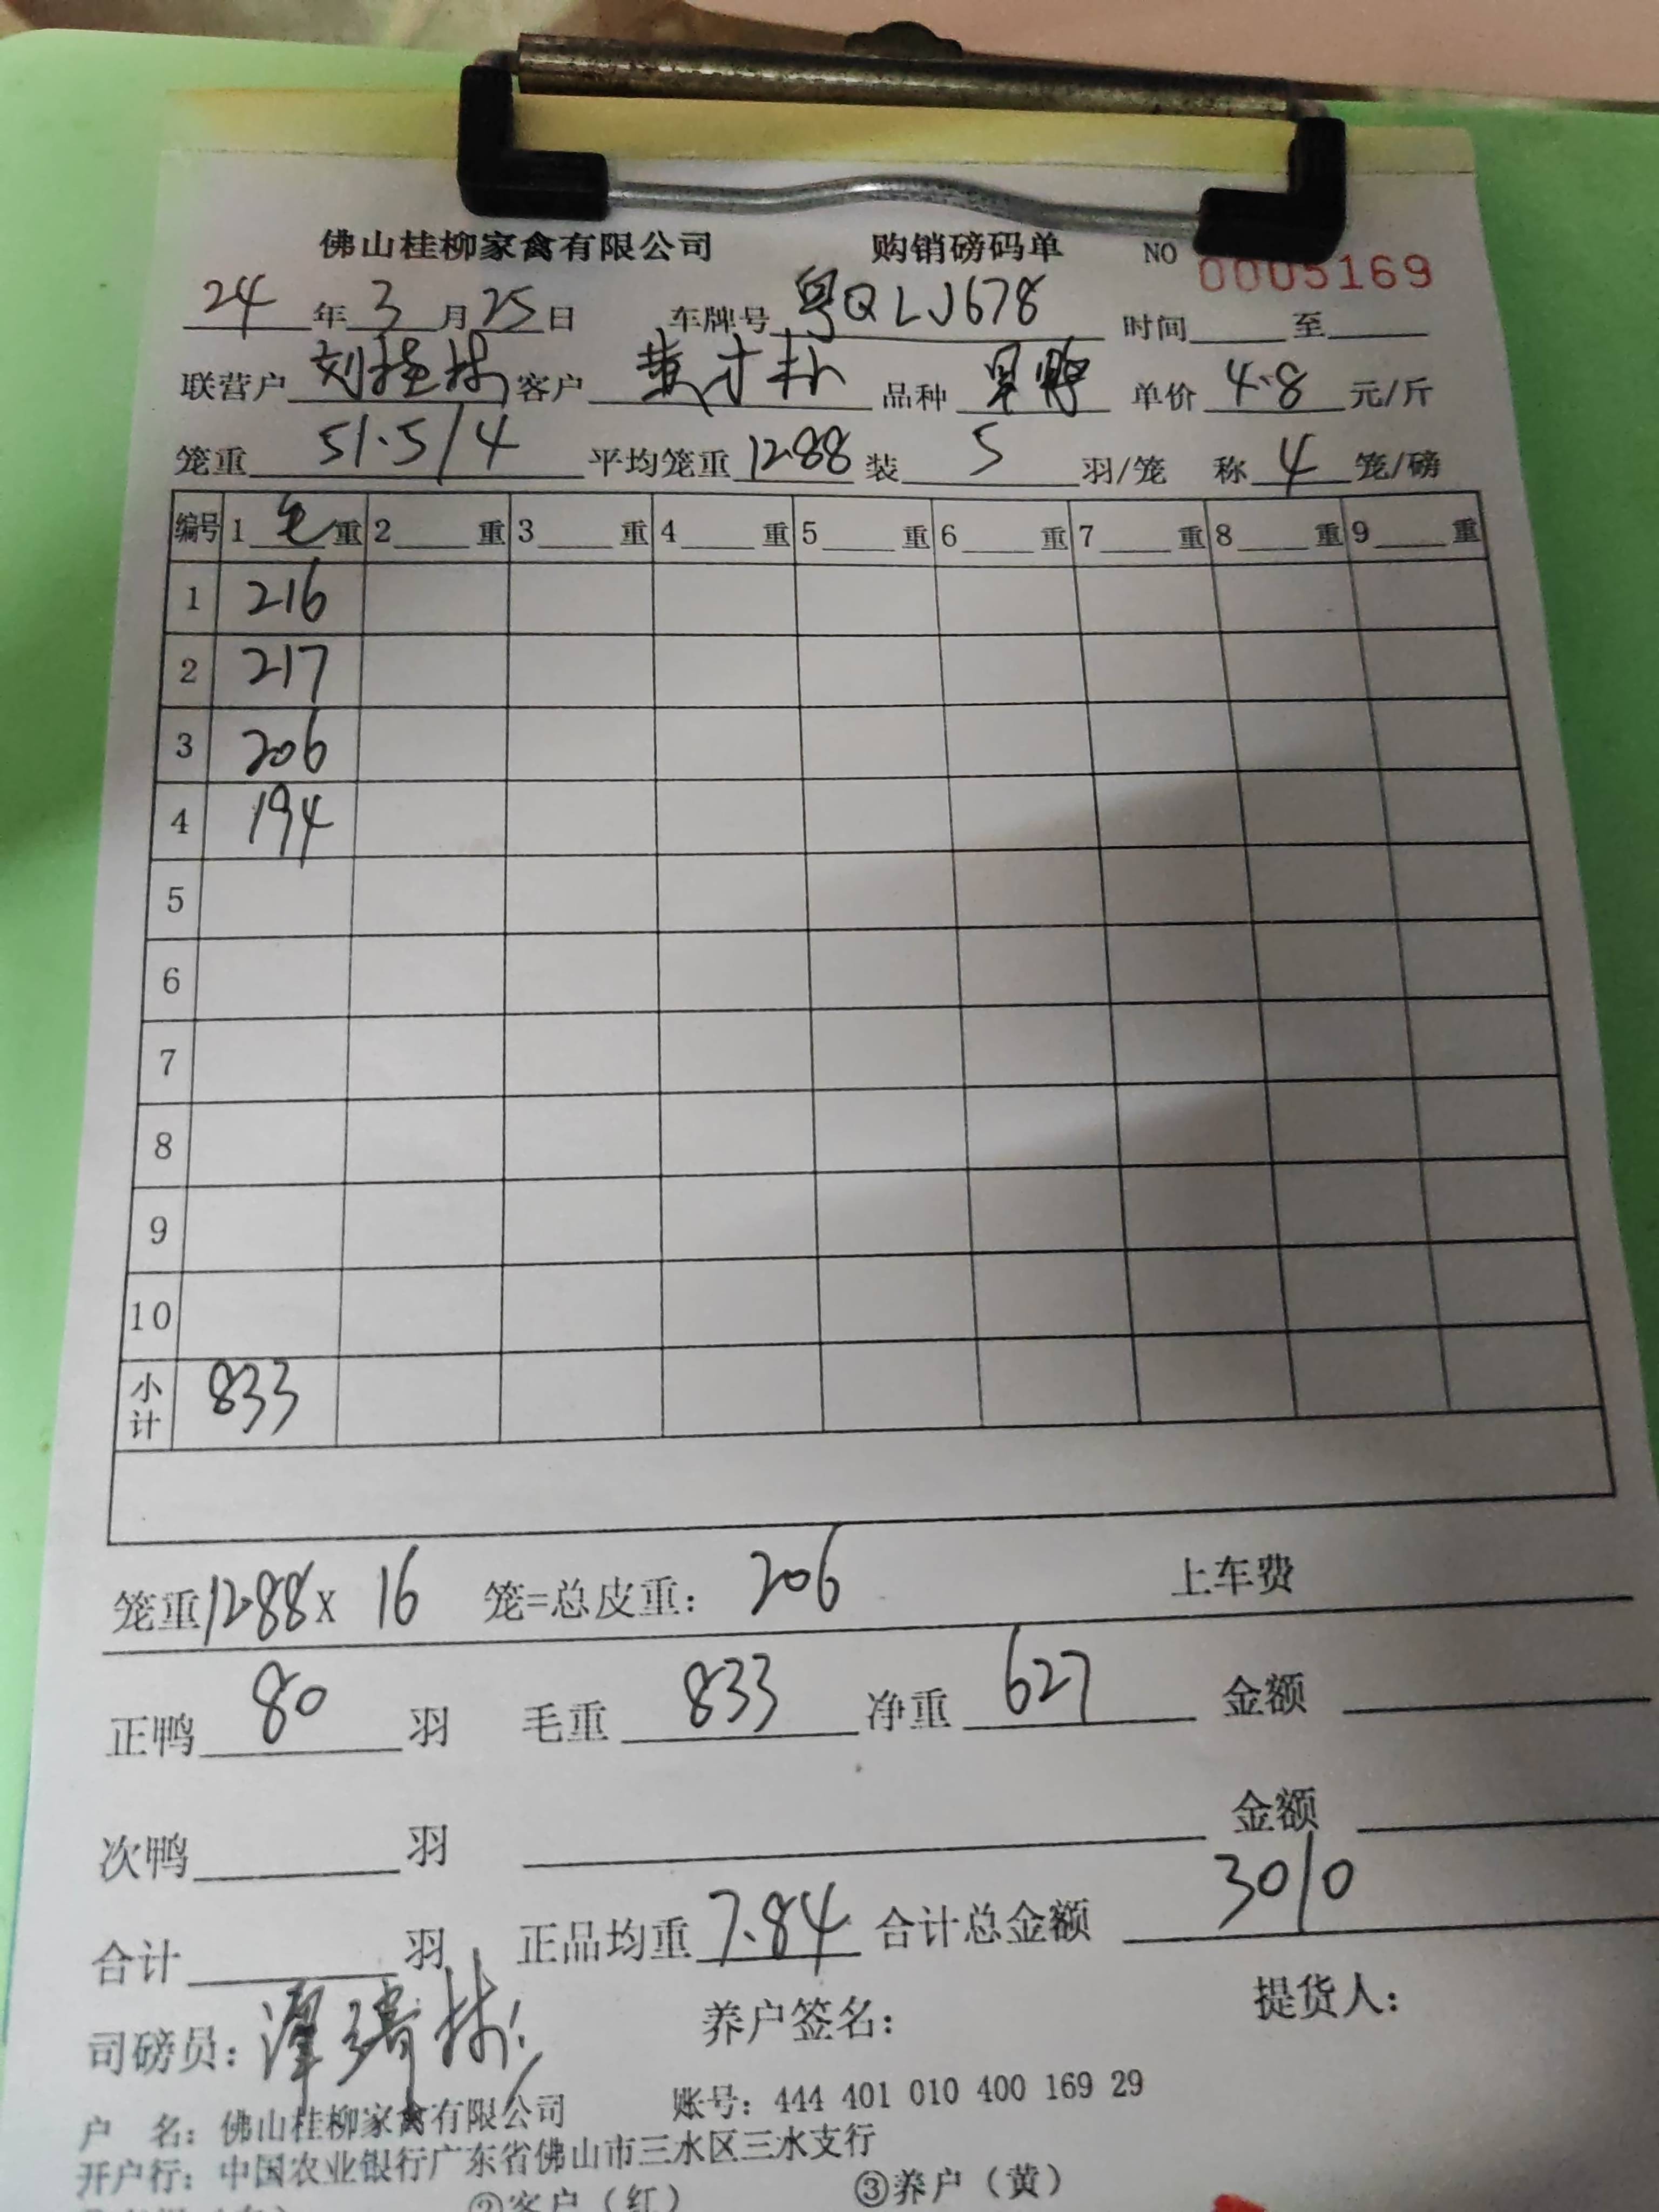 佛山桂柳家禽有限公司 购销磅码单 NO 0005169
24年3月25日 车牌号 粤QLJ678 时间 至
联营户 刘 林 客户 黄才 品种 单价 4.8 元/斤
笼重 51.5/4 平均笼重 12.88 装 5 羽/笼 称 4 笼/磅
编号 1 毛 重 2 重 3 重 4 重 5 重 6 重 7 重 8 重 9 重
1 216
2 217
3 206
4 194
5
6
7
8
9
10
小计 833
笼重 12.88 x 16 笼=总皮重: 206 上车费
正鸭 80 羽 毛重 833 净重 627 金额
次鸭 羽 金额
合计 羽 正品均重 7.84 合计总金额 3010
司磅员: 养户签名: 提货人:
户 名: 佛山桂柳家禽有限公司 账号: 444 401 010 400 169 29
开户行: 中国农业银行广东省佛山市三水区三水支行
②客户（红） ③养户（黄）